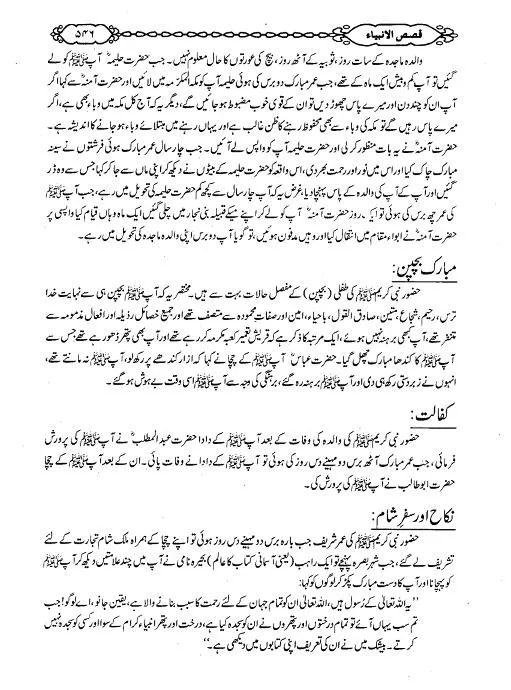 قصص الانبیاء
۵۴۶
والدہ ماجدہ کے سات روز، ثوبیہ کے آٹھ روز، بیچ کی عورتوں کا حال معلوم نہیں۔ جب حضرت حلیمہؓ آپ ﷺ کو لے
گئیں تو آپ کم و بیش ایک ماہ کے تھے، جب عمر مبارک دو برس کی ہوئی حلیمہ آپ کو مکۃ المکرّمہ میں لائیں اور حضرت آمنہؓ سے کہا اگر
آپ ان کو چند دن اور میرے پاس چھوڑ دیں تو ان کے قویٰ خوب مضبوط ہو جائیں گے، دیگر یہ کہ آج کل مکہ میں وباء بھی ہے، اگر
میرے پاس رہیں گے تو مکہ کی وباء سے بھی محفوظ رہنے کا ظن غالب ہے اور یہاں رہنے میں مبتلائے وباء ہو جانے کا اندیشہ ہے۔
حضرت آمنہؓ نے یہ بات منظور کر لی اور حضرت حلیمہ آپ کو واپس لے آئیں۔ جب چار سال عمر مبارک ہوئی فرشتوں نے سینہ
مبارک چاک کیا اور اس میں نور اور رحمت بھر دی، اس واقعہ کو حضرت حلیمہ کے بیٹوں نے دیکھ کر اپنی ماں سے جا کر کہا جس سے وہ ڈر
گئیں اور آپ کے آپ کی والدہ کے پاس پہنچا دیا، غرض یہ کہ آپ چار سال سے کچھ کم حضرت حلیمہ کی تحویل میں رہے، جب آپ ﷺ
کی عمر چھ برس کی ہوئی تو ایک روز حضرت آمنہؓ آپ کو لے کر اپنے میکے قبیلہ بنی نجار میں چلی گئیں ایک ماہ وہاں قیام کیا واپسی پر
حضرت آمنہؓ نے ابواء مقام میں انتقال کیا اور وہیں مدفون ہوئیں، تو گویا آپ دو برس اپنی والدہ ماجدہ کی تحویل میں رہے۔
مبارک بچپن:
حضور نبی کریم ﷺ کی طفلی (بچپن) کے مفصل حالات بہت سے ہیں۔ مختصر یہ کہ آپ ﷺ بچپن ہی سے نہایت خدا
ترس، رحیم، شجاع، متین، صادق القول، باحیاء، امین اور صفات محمودہ سے متصف تھے اور جمیع خصائل رذیلہ اور افعال مذمومہ سے
متنفر تھے، آپ کبھی برہنہ نہیں ہوئے، ایک مرتبہ کا ذکر ہے کہ قریش تعمیر کعبہ مکرمہ کر رہے تھے اور آپ بھی پتھر ڈھو رہے تھے جس سے
آپ ﷺ کا کندھا مبارک چھل گیا۔ حضرت عباسؓ آپ ﷺ کے چچا نے کہا کہ ازار کندھے پر رکھ لو، آپ ﷺ نہ مانتے تھے،
انہوں نے زبردستی رکھ ہی دی اور آپ ﷺ برہنہ رہ گئے، برہنگی کی وجہ سے آپ ﷺ اسی وقت بے ہوش ہو گئے۔
کفالت:
حضور نبی کریم ﷺ کی والدہ کی وفات کے بعد آپ ﷺ کے دادا حضرت عبدالمطلبؓ نے آپ ﷺ کی پرورش
فرمائی، جب عمر مبارک آٹھ برس دو مہینے دس روز کی ہوئی تو آپ ﷺ کے دادا نے وفات پائی۔ ان کے بعد آپ ﷺ کے چچا
حضرت ابو طالب نے آپ ﷺ کی پرورش کی۔
نکاح اور سفر شام:
حضور نبی کریم ﷺ کی عمر شریف جب بارہ برس دو مہینے دس روز ہوئی تو اپنے چچا کے ہمراہ ملک شام تجارت کے لئے
تشریف لے گئے، جب شہر بصرہ پہنچے تو ایک راہب (یعنی آسمانی کتاب کا عالم) بحیرہ نامی نے آپ میں چند علامتیں دیکھ کر آپ ﷺ
کو پہچانا اور آپ کا دست مبارک پکڑ کر لوگوں کو کہا:
”یہ اللہ تعالیٰ کے رسول ہیں، اللہ تعالیٰ ان کو تمام جہان کے لئے رحمت کا سبب بنانے والا ہے، یقین جانو، اے لوگو! جب
تم سب یہاں آئے تو تمام درختوں اور پتھروں نے ان کو سجدہ کیا ہے، درخت اور پتھر انبیاء کرام کے سوا اور کسی کو سجدہ نہیں
کرتے۔ بیشک میں نے ان کی تعریف اپنی کتابوں میں دیکھی ہے۔“